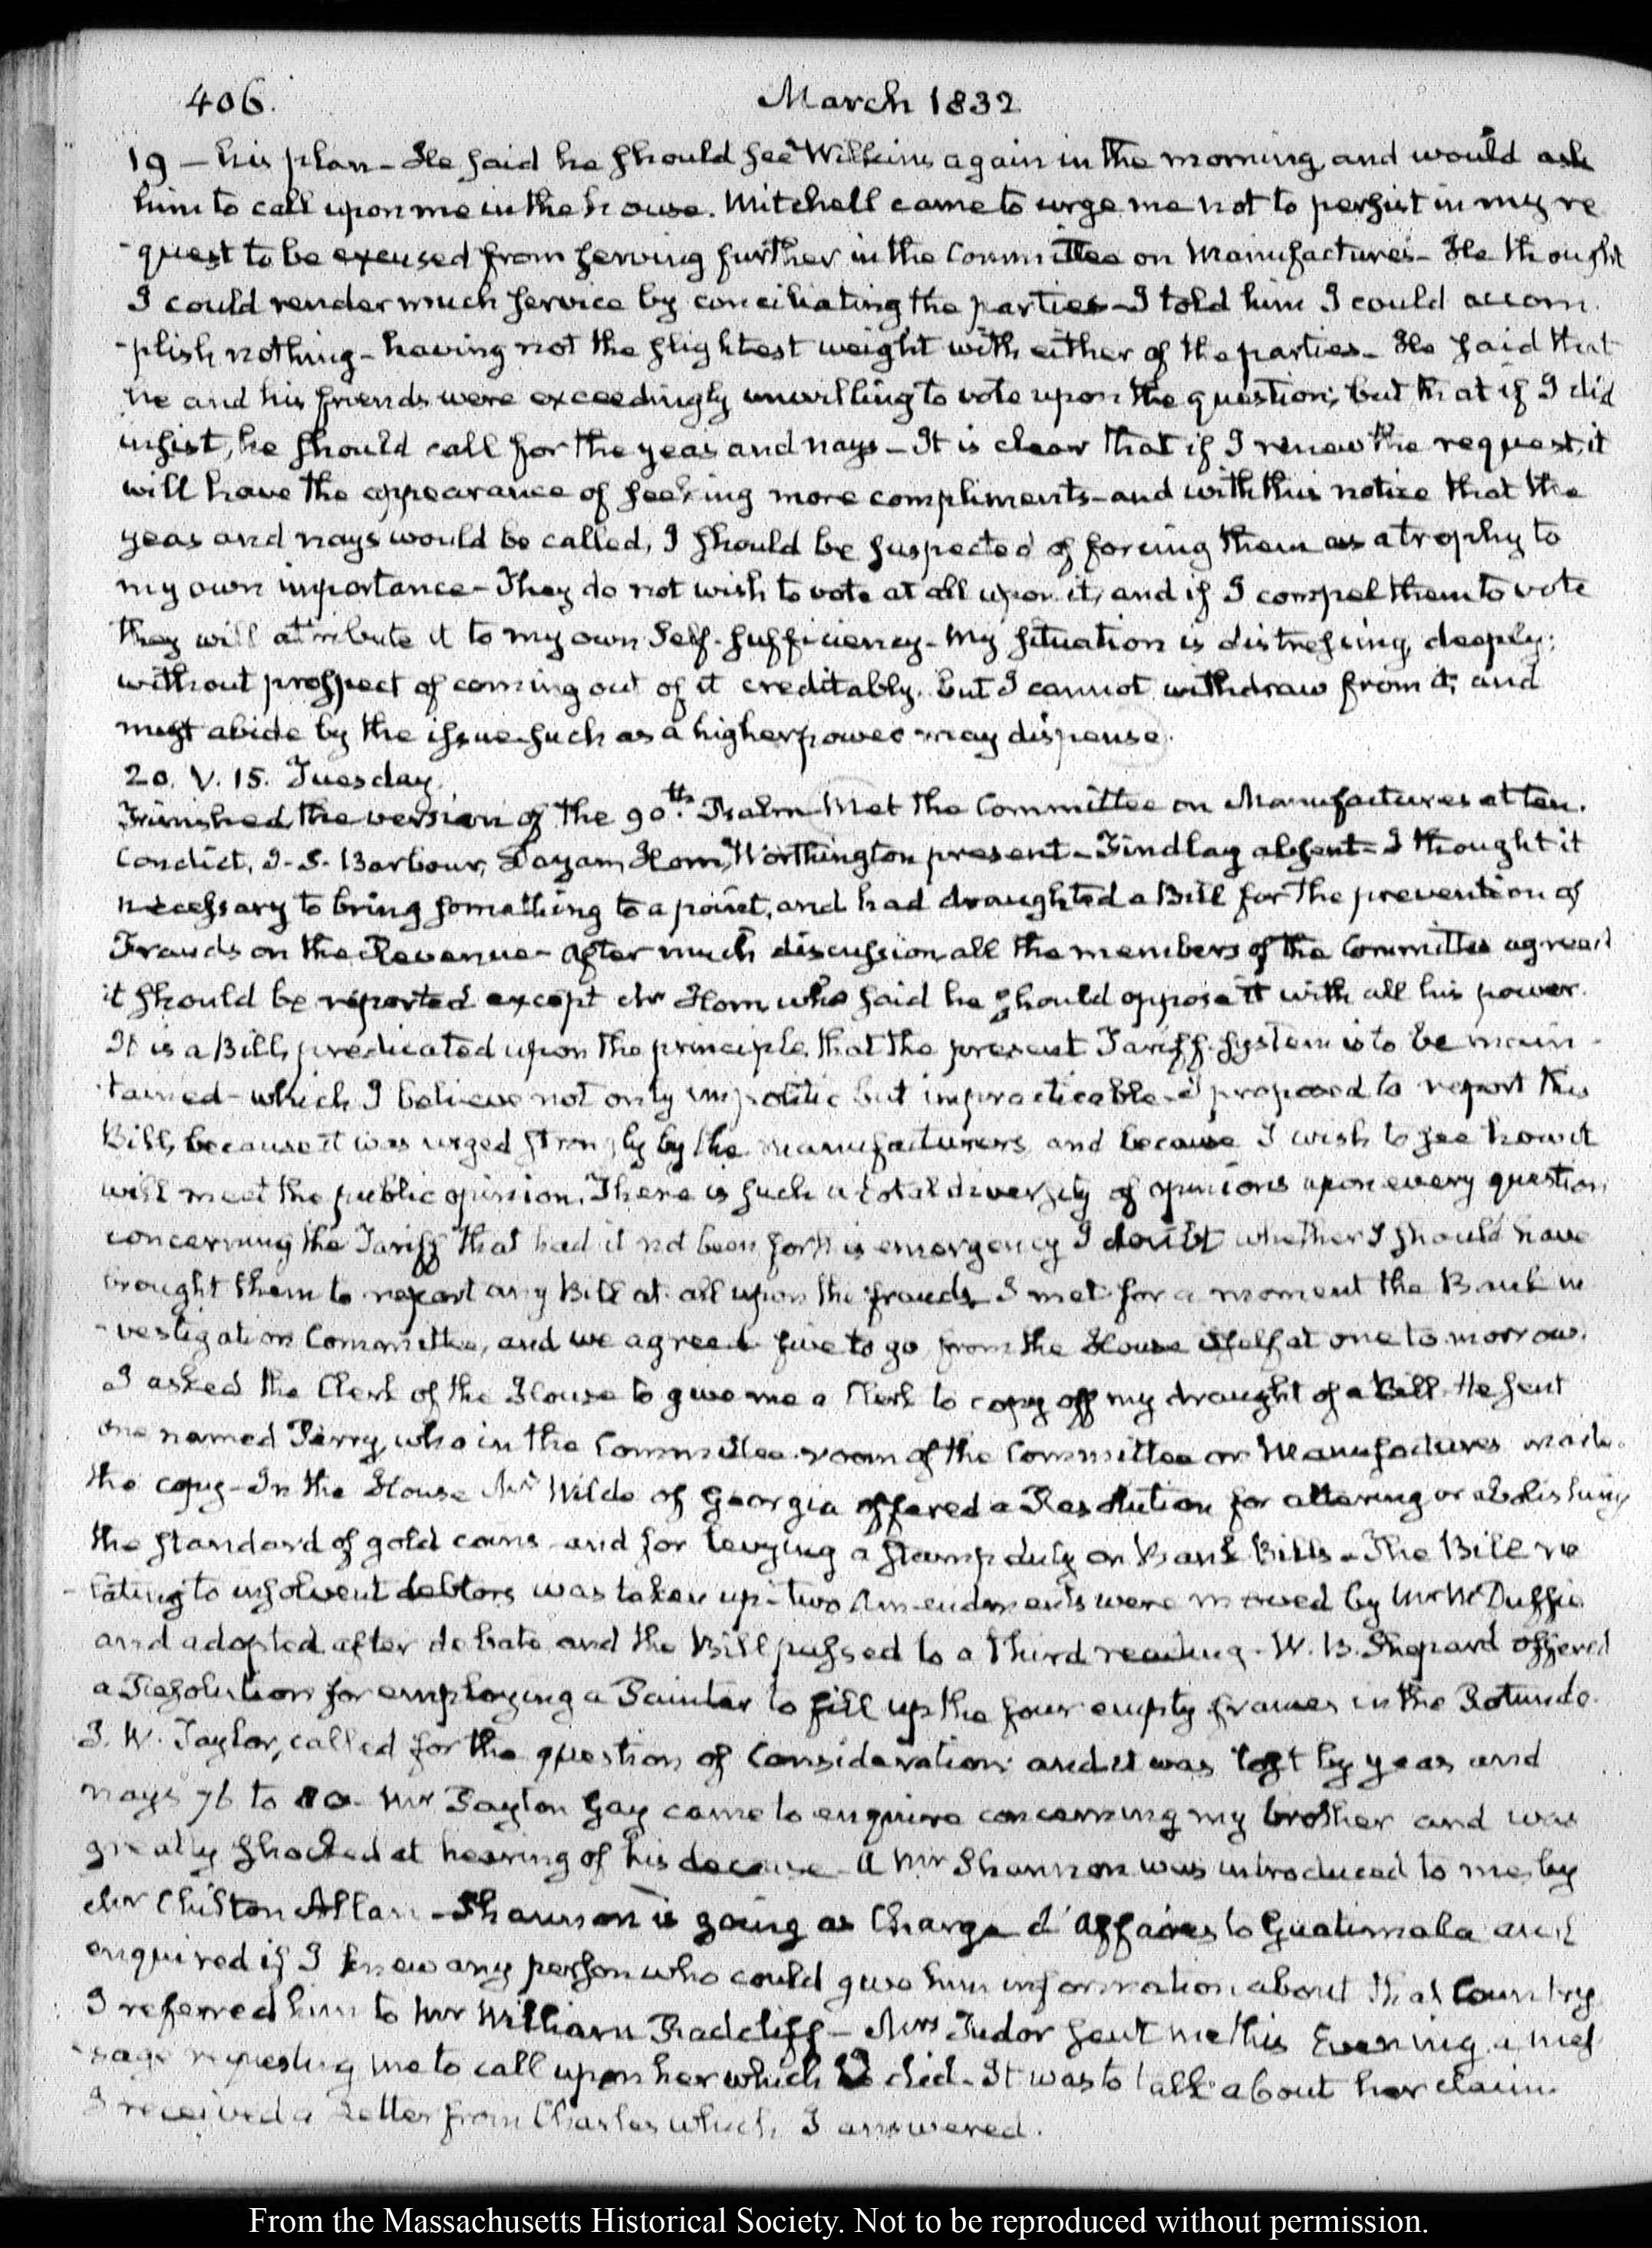 406.
March 1832
19 — his plan — He said he should see Wilkins again in the morning, and would ask
him to call upon me in the house. Mitchell came to urge me not to persist in my re
-quest to be excused from serving further in the Committee on Manufactures — He thought
I could render much service by conciliating the parties — I told him I could accom
-plish nothing — having not the slightest weight with either of the parties — He said that
he and his friends were exceedingly unwilling to vote upon the question; but that if I did
insist, he should call for the yeas and nays — It is clear that if I renew the request, it
will have the appearance of seeking more compliments — and with this notice that the
yeas and nays would be called, I should be suspected of forcing them as a trophy to
my own importance — They do not wish to vote at all upon it, and if I compel them to vote
they will attribute it to my own Self-sufficiency — My situation is distressing, deeply;
without prospect of coming out of it creditably. But I cannot withdraw from it; and
must abide by the issue such as a higher power may dispense.
20. V. 15. Tuesday.
Finished the version of the 90th. Psalm — Met the Committee on Manufactures at ten.
Condict, J. S. Barbour, Dayan, Horn, Worthington present — Findlay absent — I thought it
necessary to bring something to a point, and had draughted a Bill for the prevention of
Frauds on the Revenue — After much discussion all the members of the Committee agreed
it should be reported except Mr Horn who said he should oppose it with all his power.
It is a Bill, predicated upon the principle, that the present Tariff system is to be main
-tained — which I believe not only impolitic but impracticable — I proposed to report this
Bill, because it was urged strongly by the manufacturers, and because I wish to see how it
will meet the public opinion. There is such a total diversity of opinions upon every question,
concerning the Tariff that had it not been for this emergency I doubt whether I should have
brought them to report any Bill at all upon the frauds — I met for a moment the Bank in
-vestigation Committee, and we agreed five to go from the House itself at one to morrow.
I asked the Clerk of the House to give me a Clerk to copy off my draught of a Bill. He sent
one named Perry, who in the Committee room of the Committee on Manufactures made
the copy — In the House Mr Wilde of Georgia offered a Resolution for altering or abolishing
the standard of gold coins and for levying a stamp duty on Bank Bills — The Bill re
-lating to insolvent debtors was taken up — two Amendments were moved by Mr McDuffie
and adopted after debate and the Bill passed to a third reading — W. B. Shepard offered
a Resolution for employing a Painter to fill up the four empty frames in the Rotunda.
J. W. Taylor, called for the question of Consideration; and it was lost by yeas and
nays 76 to 80 — Mr Payton Gay came to enquire concerning my brother and was
greatly shocked at hearing of his decease — A Mr Shannon was introduced to me, by
Mr Chilton Allan — Shannon is going as Charge d'Affaires to Guatimala and
enquired if I knew any person who could give him information about that Country
I referred him to Mr William Radcliff — Mrs Tudor sent me this Evening a mes
-sage requesting me to call upon her which I did — It was to talk about her claim.
I received a Letter from Charles which I answered.
From the Massachusetts Historical Society. Not to be reproduced without permission.